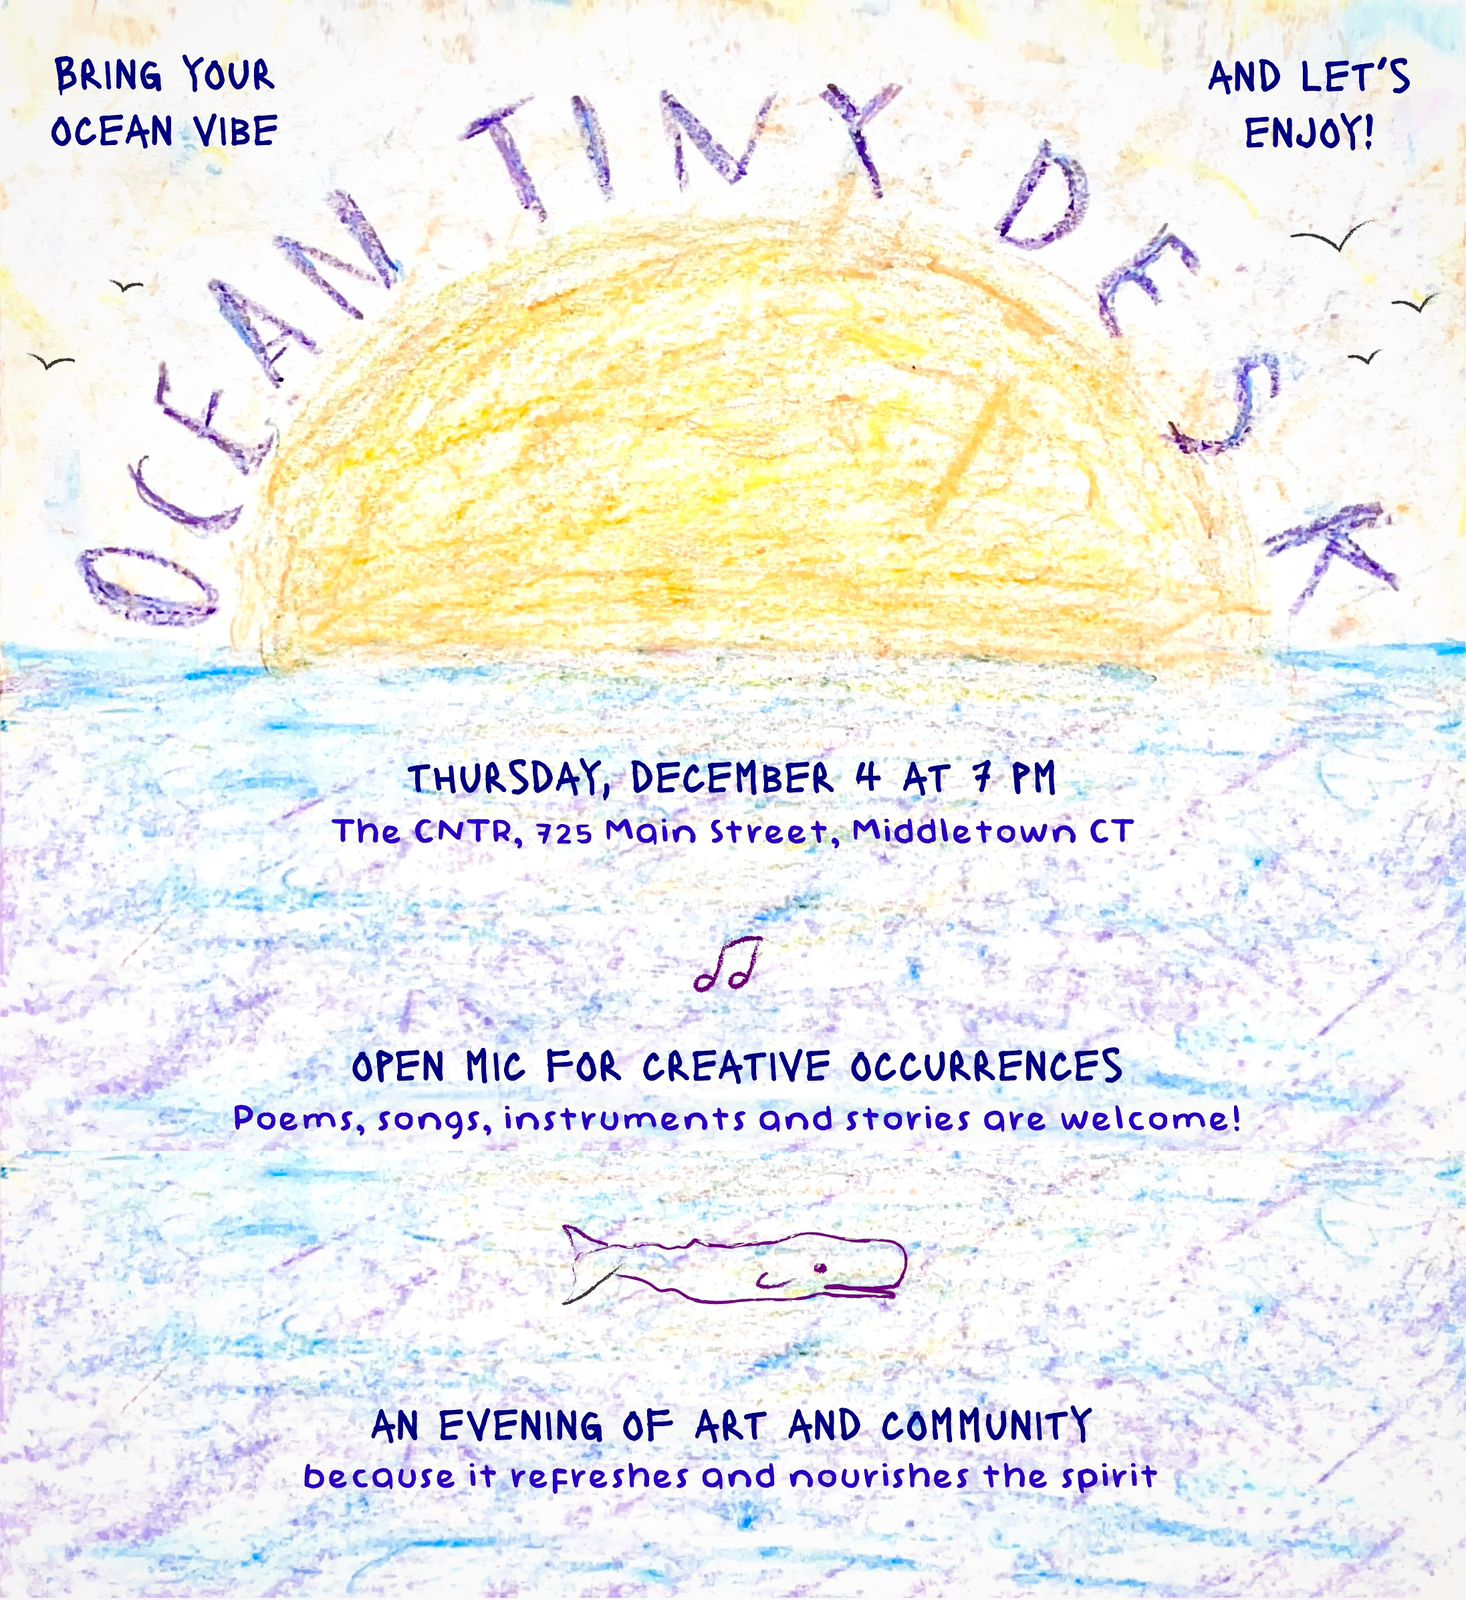 BRING YOUR
OCEAN VIBE
AND LET'S
ENJOY!
OCEAN TINY DESK
THURSDAY, DECEMBER 4 AT 7 PM
The CNTR, 725 Main Street, Middletown CT
OPEN MIC FOR CREATIVE OCCURRENCES
Poems, songs, instruments and stories are welcome!
AN EVENING OF ART AND COMMUNITY
because it refreshes and nourishes the spirit